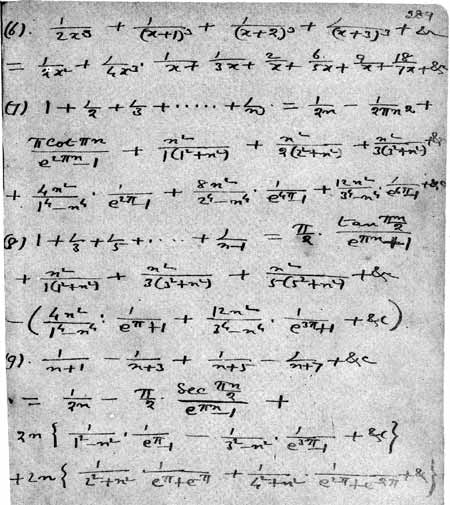 329
(6). 1/2x³ + 1/(x+1)³ + 1/(x+2)³ + 1/(x+3)³ + &c
= 1/2x² + 1/4x³ · 1/x + 1/3x + 2/x + 6/5x + 9/x + 18/7x + &c
(7) 1 + 1/2 + 1/3 + ...... + 1/n = 1/2n − 1/2πn² +
π cot πn/e^2πn−1 + n²/1(1²+n²) + n²/2(2²+n²) + n²/3(3²+n²) + &c
+ 4n²/1⁴−n⁴ · 1/e^2π−1 + 8n²/2⁴−n⁴ · 1/e^4π−1 + 12n²/3⁴−n⁴ · 1/e^6π−1 + &c
(8) 1 + 1/3 + 1/5 + ... + 1/n−1 = π/2 · tan πn/2 / e^πn+1
+ n²/1(1²+n²) + n²/3(3²+n²) + n²/5(5²+n²) + &c
− (4n²/1⁴−n⁴ · 1/e^π+1 + 12n²/3⁴−n⁴ · 1/e^3π+1 + &c)
(9). 1/n+1 − 1/n+3 + 1/n+5 − 1/n+7 + &c
= 1/2n − π/2 · Sec πn/2 / e^πn−1 +
2n { 1/1²−n² · 1/e^π−1 − 1/3²−n² · 1/e^3π−1 + &c }
+ 2n { 1/2²+n² · 1/e^π+e^−π + 1/4²+n² · 1/e^2π+e^−2π + &c }